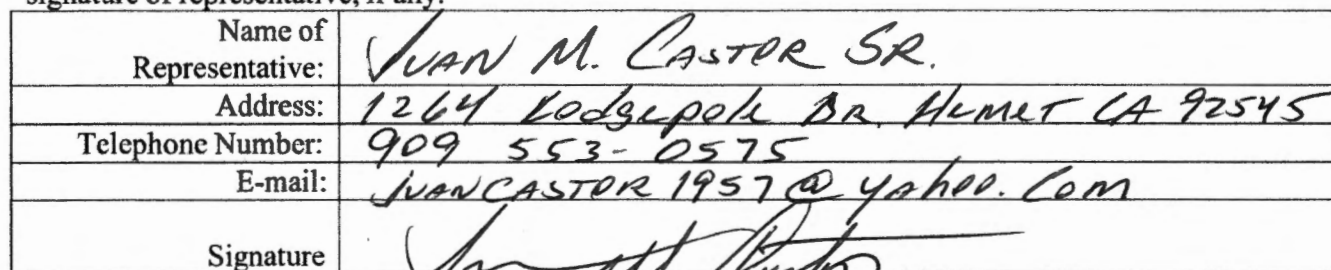 signature of representative, if any:
Name of
Representative: JUAN M. CASTOR SR.
Address: 1264 Lodgepole DR. Hemet CA 92545
Telephone Number: 909 553-0575
E-mail: JUANCASTOR1957@yahoo.com
Signature